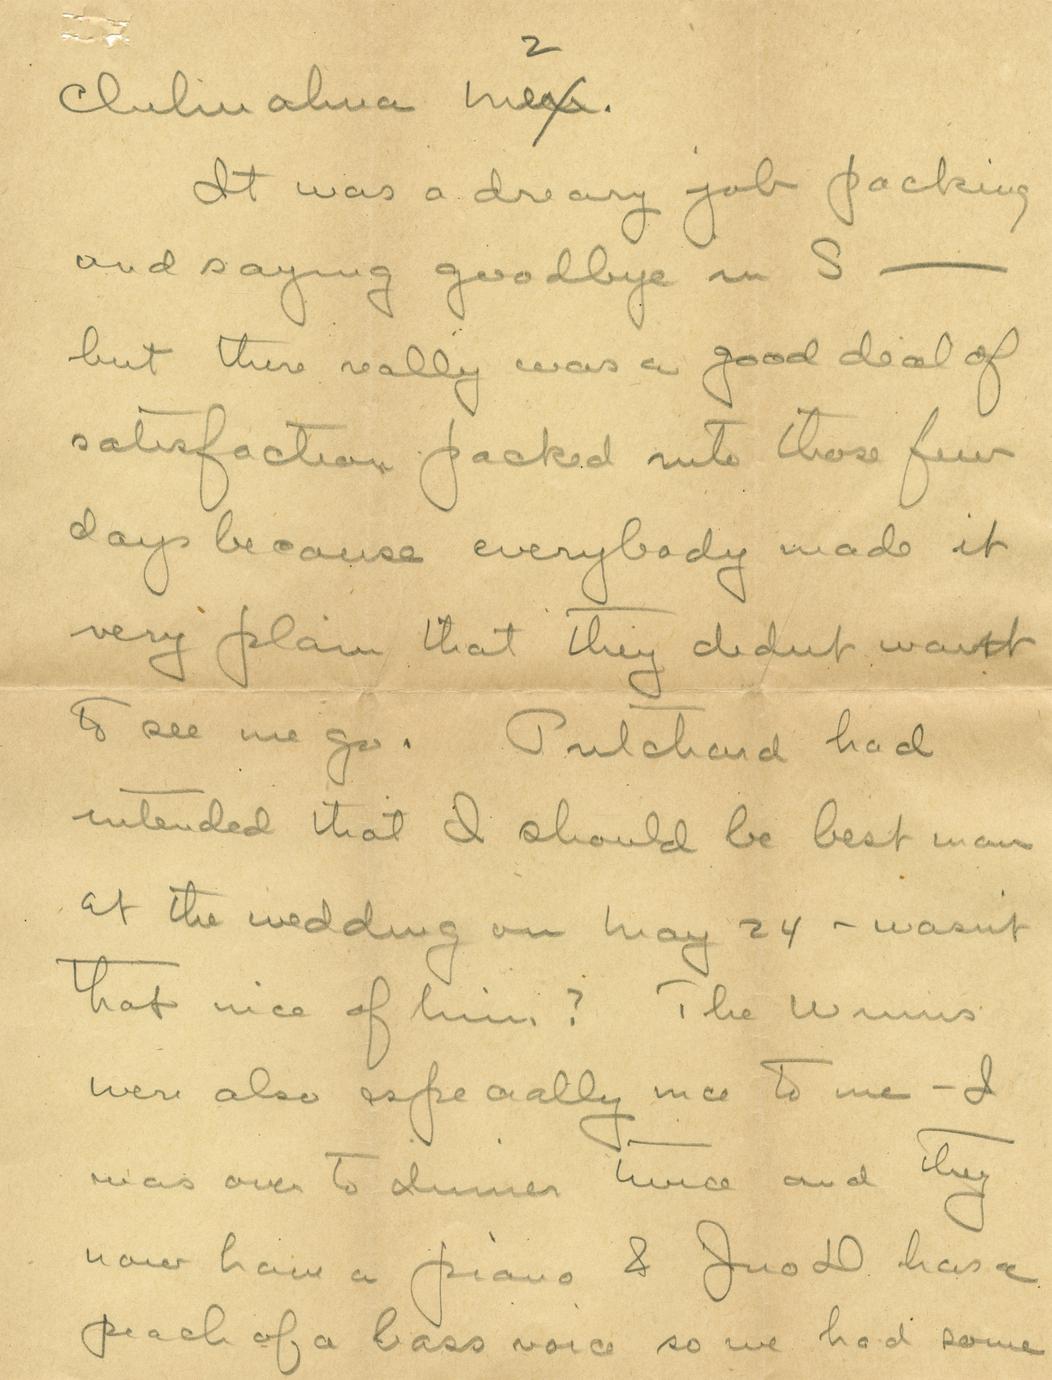 2
Chihuahua Mex.
It was a dreary job packing
and saying goodbye in S —
but there really was a good deal of
satisfaction packed into those few
days because everybody made it
very plain that they didnt want
to see me go. Pritchard had
intended that I should be best man
at the wedding on May 24 - wasnt
that nice of him? The
were also especially nice to me - I
was over to dinner twice and they
now have a piano & Jno D. has a
peach of a bass voice so we had some